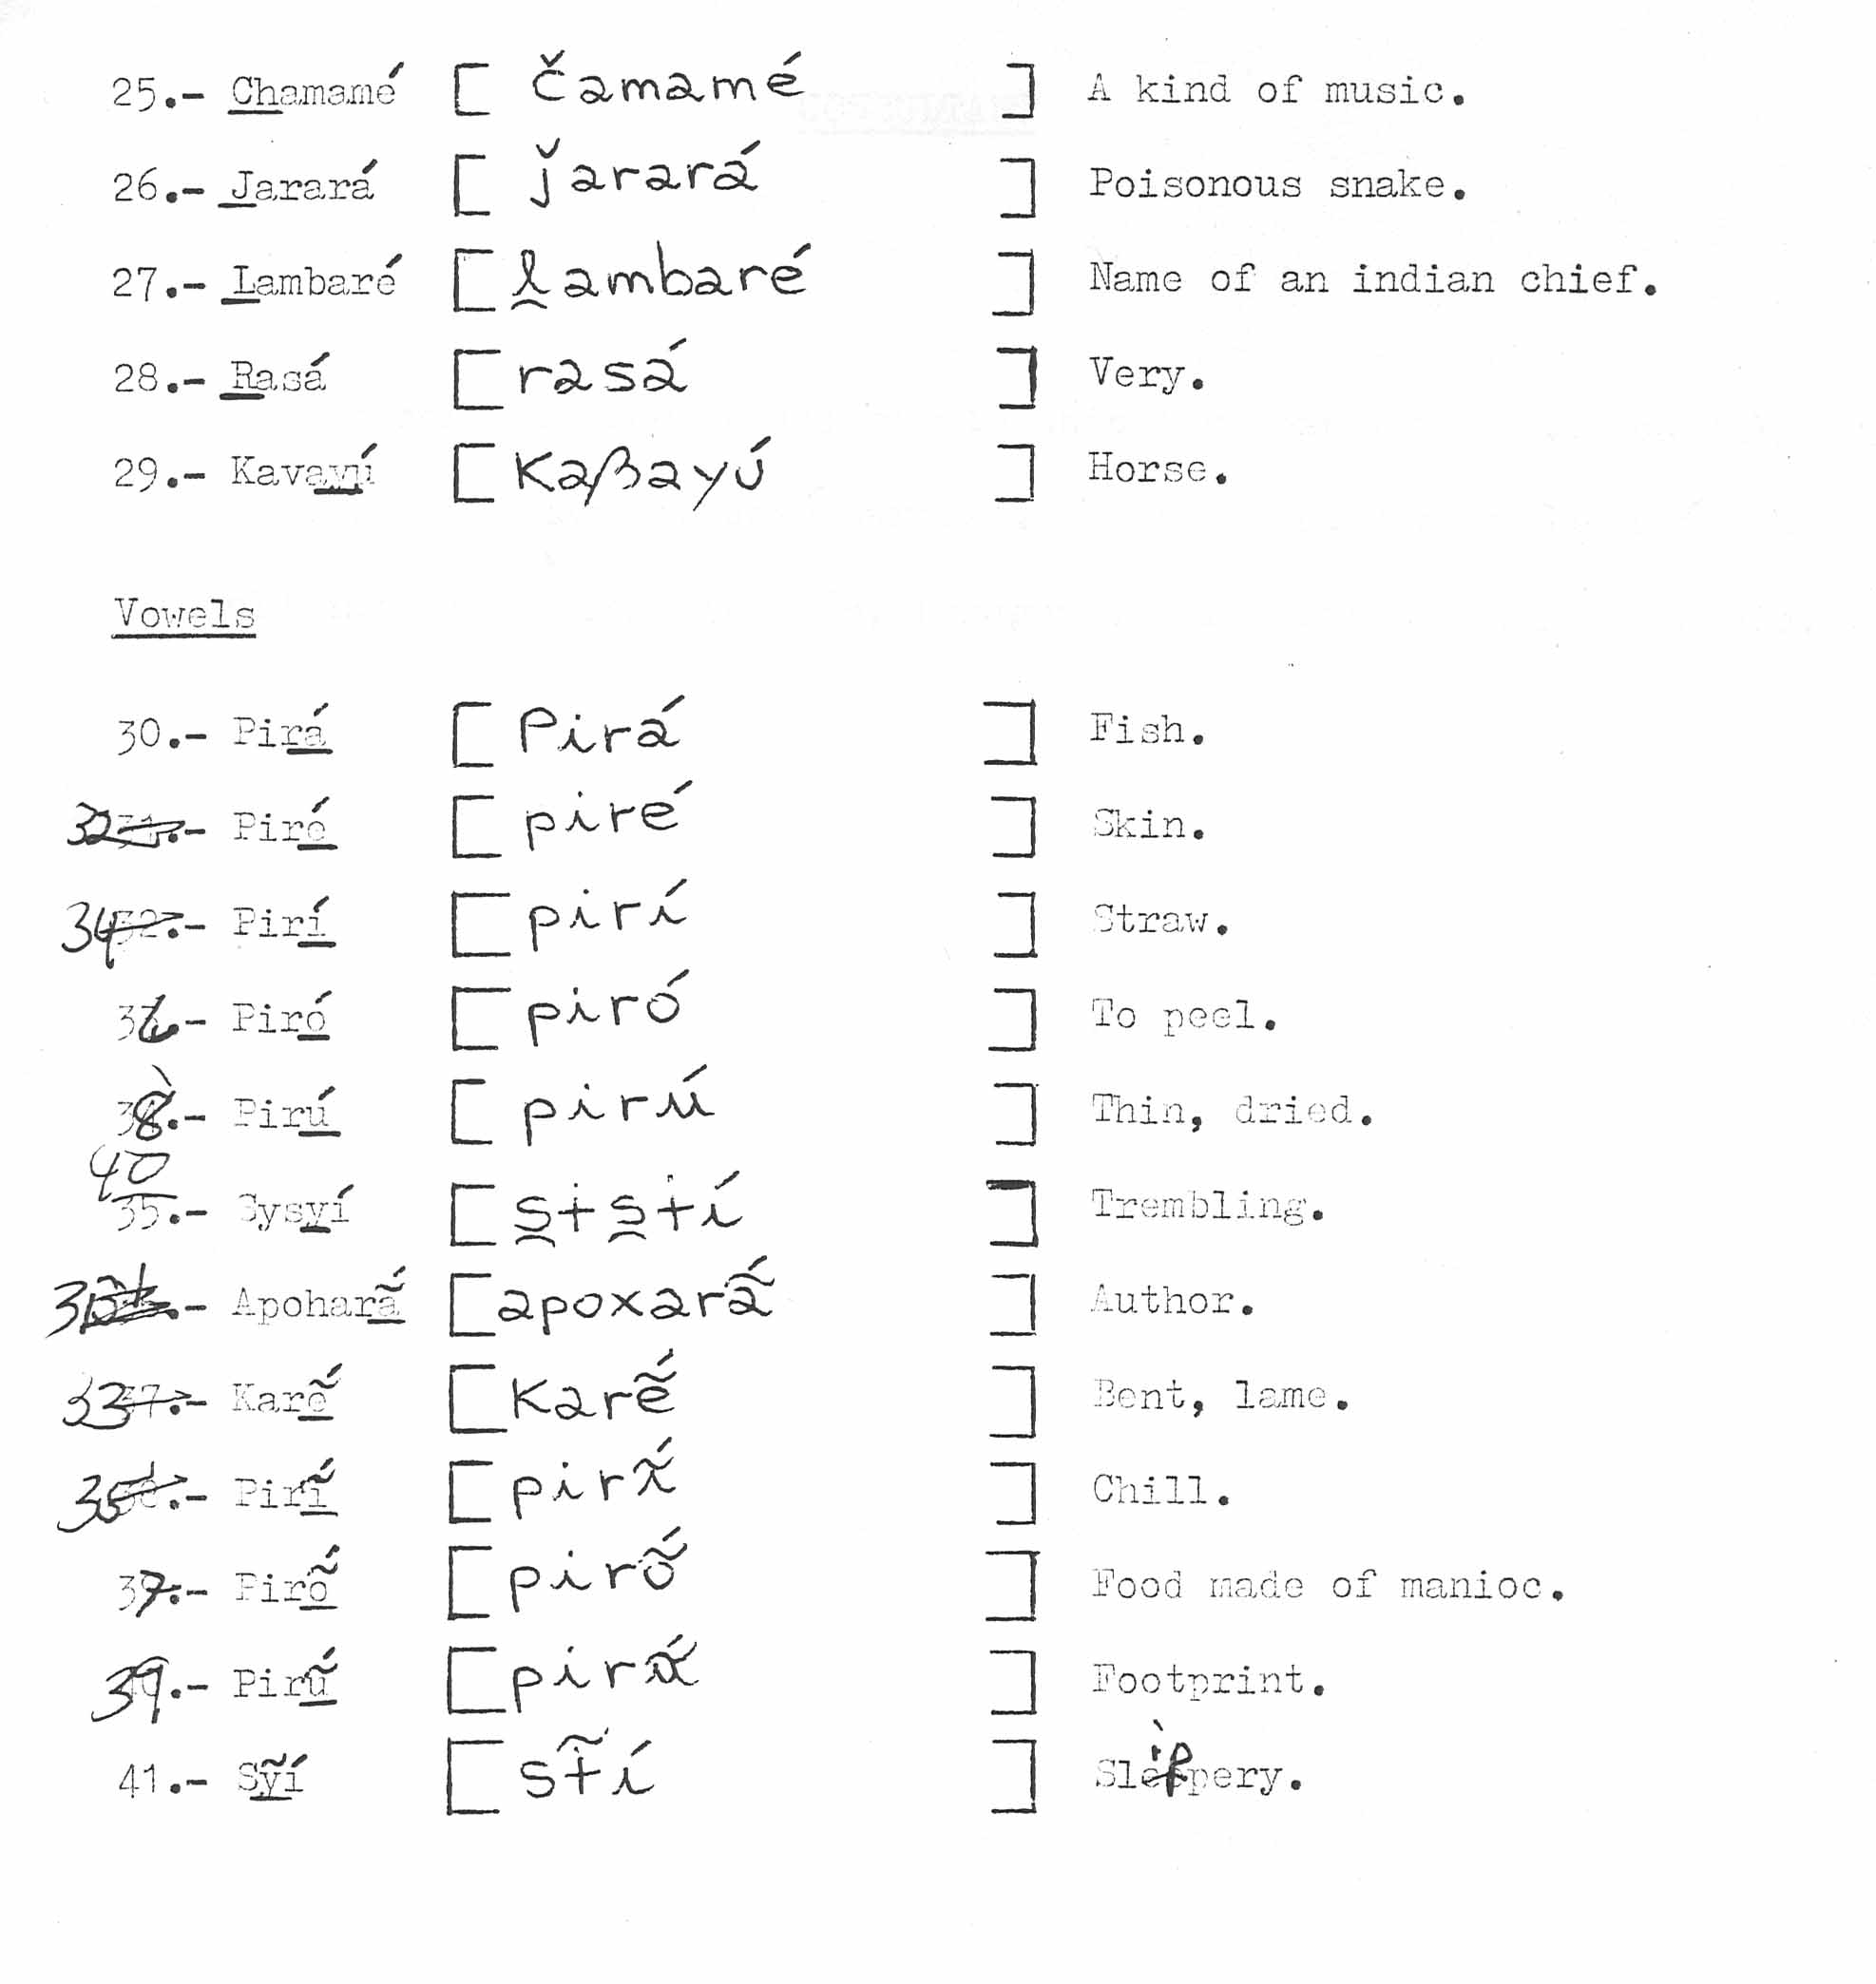 25.- Chamamé [ čamamé ] A kind of music.
26.- Jarará [ ǰarará ] Poisonous snake.
27.- Lambaré [ l̯ambaré ] Name of an indian chief.
28.- Rasá [ rasá ] Very.
29.- Kavayú [ Kaβayú ] Horse.
Vowels
30.- Pirá [ Pirá ] Fish.
32.- Piré [ piré ] Skin.
34.- Pirí [ pirí ] Straw.
36.- Piró [ piró ] To peel.
38.- Pirú [ pirú ] Thin, dried.
40
35.- Sysyí [ s̯ɨs̯ɨí ] Trembling.
31.- Apohará̃ [ apoxará̃ ] Author.
33.- Karẽ́ [ Karẽ́ ] Bent, lame.
35.- Pirĩ́ [ pirĩ́ ] Chill.
37.- Pirṍ [ pirṍ ] Food made of manioc.
39.- Pirṹ [ pirṹ ] Footprint.
41.- Sỹí [ sɨ̃í ] Slippery.